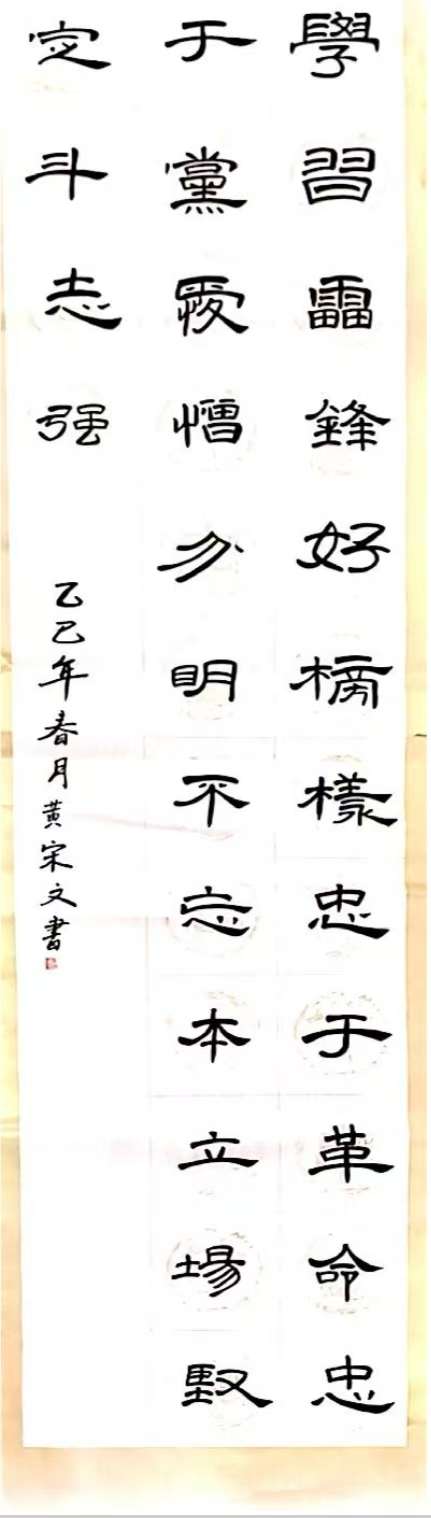 學習雷鋒好榜樣忠于革命忠
于黨愛憎分明不忘本立場堅
定斗志强
乙巳年春月黄宋文書